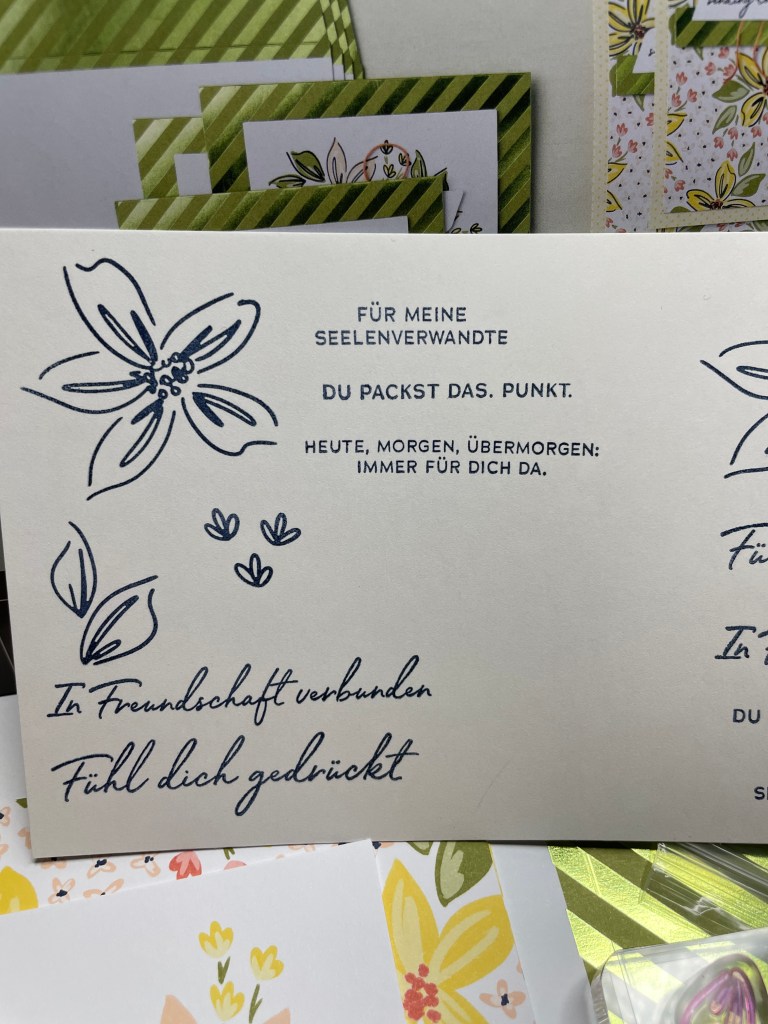 FÜR MEINE
SEELENVERWANDTE
DU PACKST DAS. PUNKT.
HEUTE, MORGEN, ÜBERMORGEN:
IMMER FÜR DICH DA.
In Freundschaft verbunden
Fühl dich gedrückt
In
DU